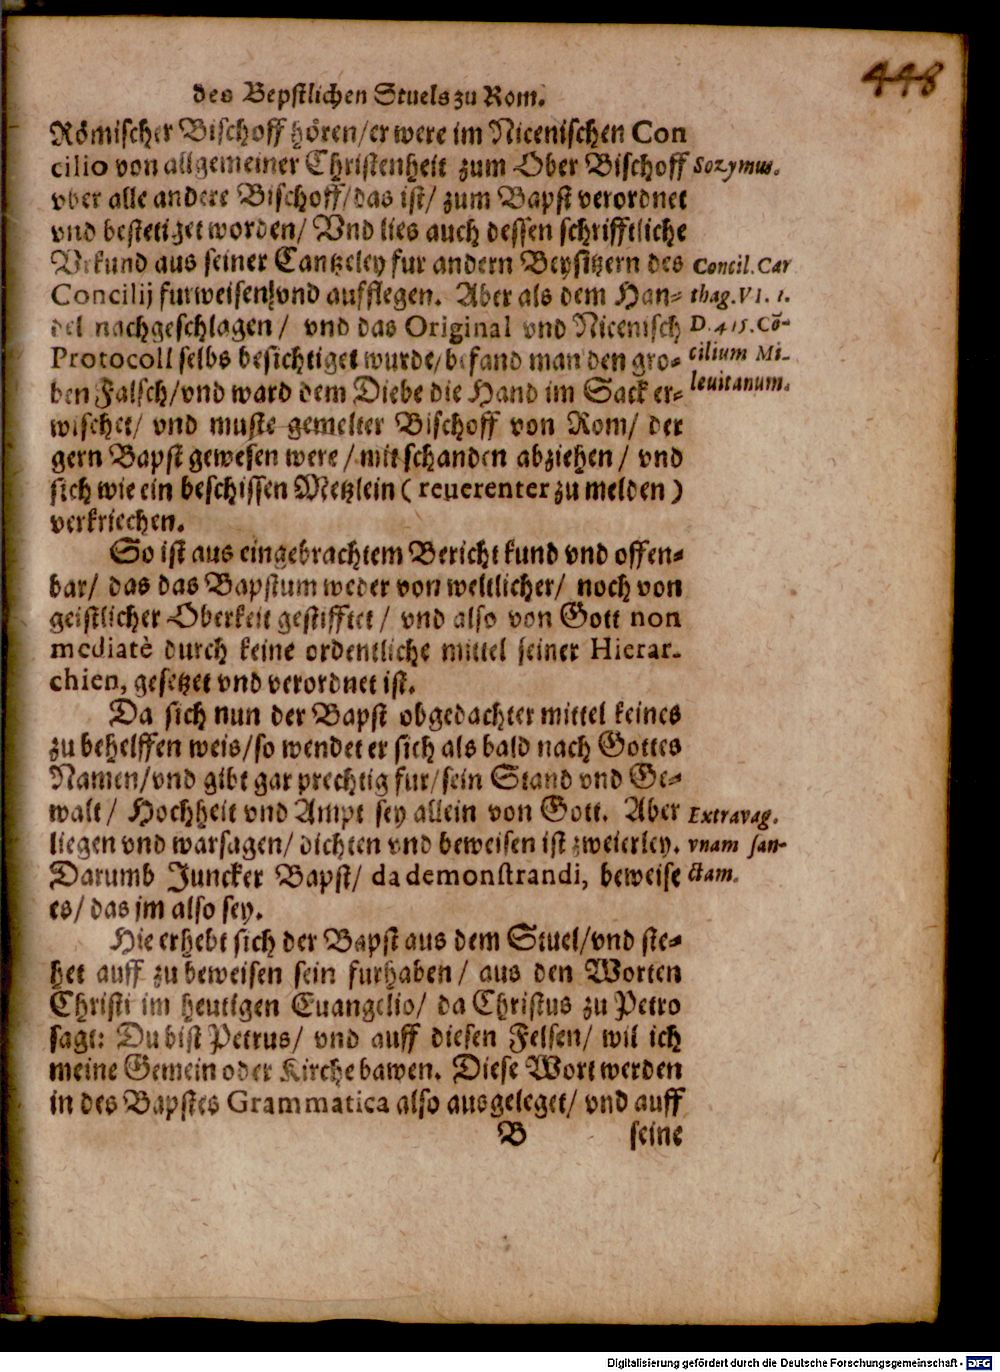 448
des Bepstlichen Stuels zu Rom.
Römischer Bischoff hören/er were im Nicenischen Con
cilio von allgemeiner Christenheit zum Ober Bischoff
Sozymus.
vber alle andere Bischoff/das ist/ zum Bapst verordnet
vnd bestetiget worden/ Vnd lies auch dessen schrifftliche
Vrkund aus seiner Cantzeley fur andern Beysitzern des
Concil. Car
Concilij furweisen/vnd aufflegen. Aber als dem Han-
thag. VI. 1.
del nachgeschlagen/ vnd das Original vnd Nicenisch
D. 415. Cō-
Protocoll selbs besichtiget wurde/befand man den gro-
cilium Mi-
ben Falsch/vnd ward dem Diebe die Hand im Sack er-
leuitanum.
wischet/ vnd muste gemelter Bischoff von Rom/ der
gern Bapst gewesen were/mit schanden abziehen/ vnd
sich wie ein beschissen Metzlein (reuerenter zu melden)
verkriechen.
So ist aus eingebrachtem Bericht kund vnd offen-
bar/ das das Bapstum weder von weltlicher/ noch von
geistlicher Oberkeit gestifftet/ vnd also von Gott non
mediatè durch keine ordentliche mittel seiner Hierar-
chien, gesetzet vnd verordnet ist.
Da sich nun der Bapst obgedachter mittel keines
zu behelffen weis/so wendet er sich als bald nach Gottes
Namen/vnd gibt gar prechtig fur/sein Stand vnd Ge-
walt/ Hochheit vnd Ampt sey allein von Gott. Aber
Extravag.
liegen vnd warsagen/ dichten vnd beweisen ist zweierley.
vnam san-
Darumb Juncker Bapst/ da demonstrandi, beweise
ctam.
es/ das jm also sey.
Hie erhebt sich der Bapst aus dem Stuel/vnd ste-
het auff zu beweisen sein furhaben/ aus den Worten
Christi im heutigen Euangelio/ da Christus zu Petro
sagt: Du bist Petrus/ vnd auff diesen Felsen/ wil ich
meine Gemein oder Kirche bawen. Diese Wort werden
in des Bapstes Grammatica also ausgeleget/ vnd auff
B seine
Digitalisierung gefördert durch die Deutsche Forschungsgemeinschaft - DFG